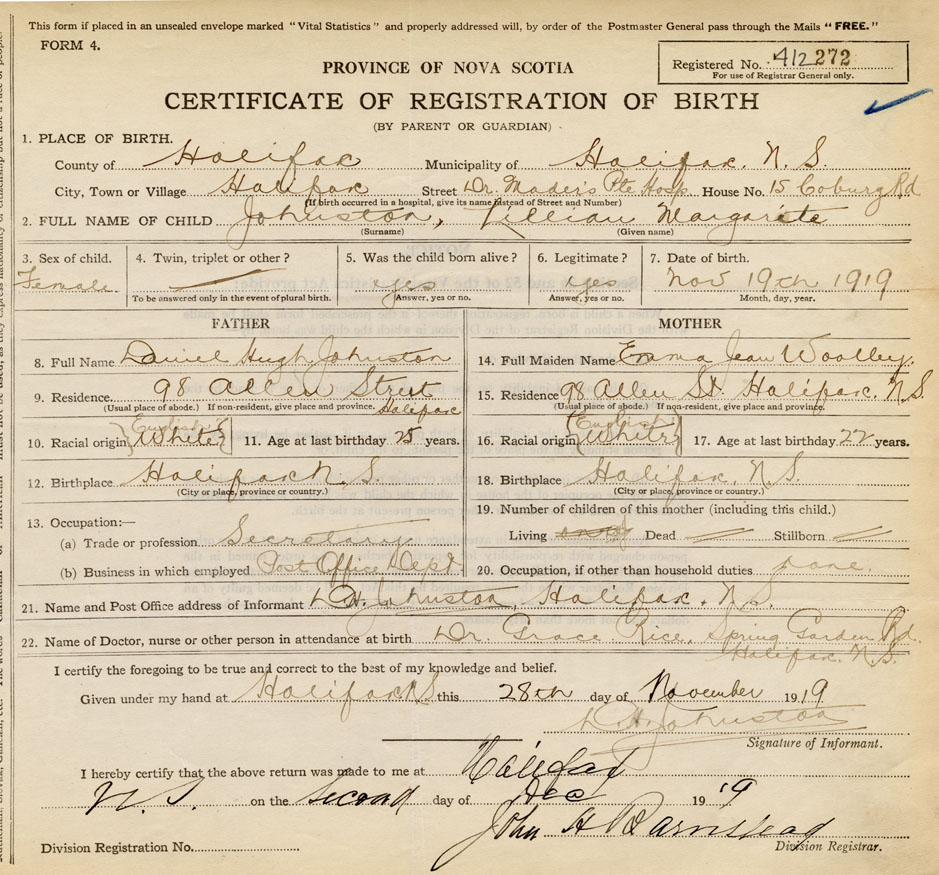 This form if placed in an unsealed envelope marked "Vital Statistics" and properly addressed will, by order of the Postmaster General pass through the Mails "FREE."
FORM 4.
Registered No. 412272
For use of Registrar General only.
PROVINCE OF NOVA SCOTIA
CERTIFICATE OF REGISTRATION OF BIRTH
(BY PARENT OR GUARDIAN)
1. PLACE OF BIRTH.
County of Halifax Municipality of Halifax. N. S.
City, Town or Village Halifax Street Dr. Mader's Pte Hosp. House No. 15 Coburg Rd
(If birth occurred in a hospital, give its name instead of Street and Number)
2. FULL NAME OF CHILD Johnston, Lillian Margarite
(Surname) (Given name)
3. Sex of child. 4. Twin, triplet or other? 5. Was the child born alive? 6. Legitimate? 7. Date of birth.
Female yes yes Nov 19th 1919
To be answered only in the event of plural birth. Answer, yes or no. Answer, yes or no. Month, day, year.
FATHER MOTHER
8. Full Name Daniel Hugh Johnston 14. Full Maiden Name Emma Jean Woolley.
9. Residence. 98 Allen Street Halifax 15. Residence 98 Allen St. Halifax. N.S.
(Usual place of abode.) If non-resident, give place and province. (Usual place of abode.) If non-resident, give place and province.
10. Racial origin {English White} 11. Age at last birthday 25 years. 16. Racial origin {English White} 17. Age at last birthday 22 years.
12. Birthplace Halifax N. S. 18. Birthplace Halifax, N. S.
(City or place, province or country.) (City or place, province or country.)
13. Occupation:— 19. Number of children of this mother (including this child.)
(a) Trade or profession Secretary Living Dead Stillborn
(b) Business in which employed Post Office Dept. 20. Occupation, if other than household duties. none.
21. Name and Post Office address of Informant D. H. Johnston, Halifax. N. S.
22. Name of Doctor, nurse or other person in attendance at birth Dr. Grace Rice, Spring Garden Rd.
Halifax. N. S.
I certify the foregoing to be true and correct to the best of my knowledge and belief.
Given under my hand at Halifax N S this 28th day of November 1919
D. H. Johnston
Signature of Informant.
I hereby certify that the above return was made to me at Halifax
N. S. on the second day of Dec 1919
John H Barnstead
Division Registration No. Division Registrar.